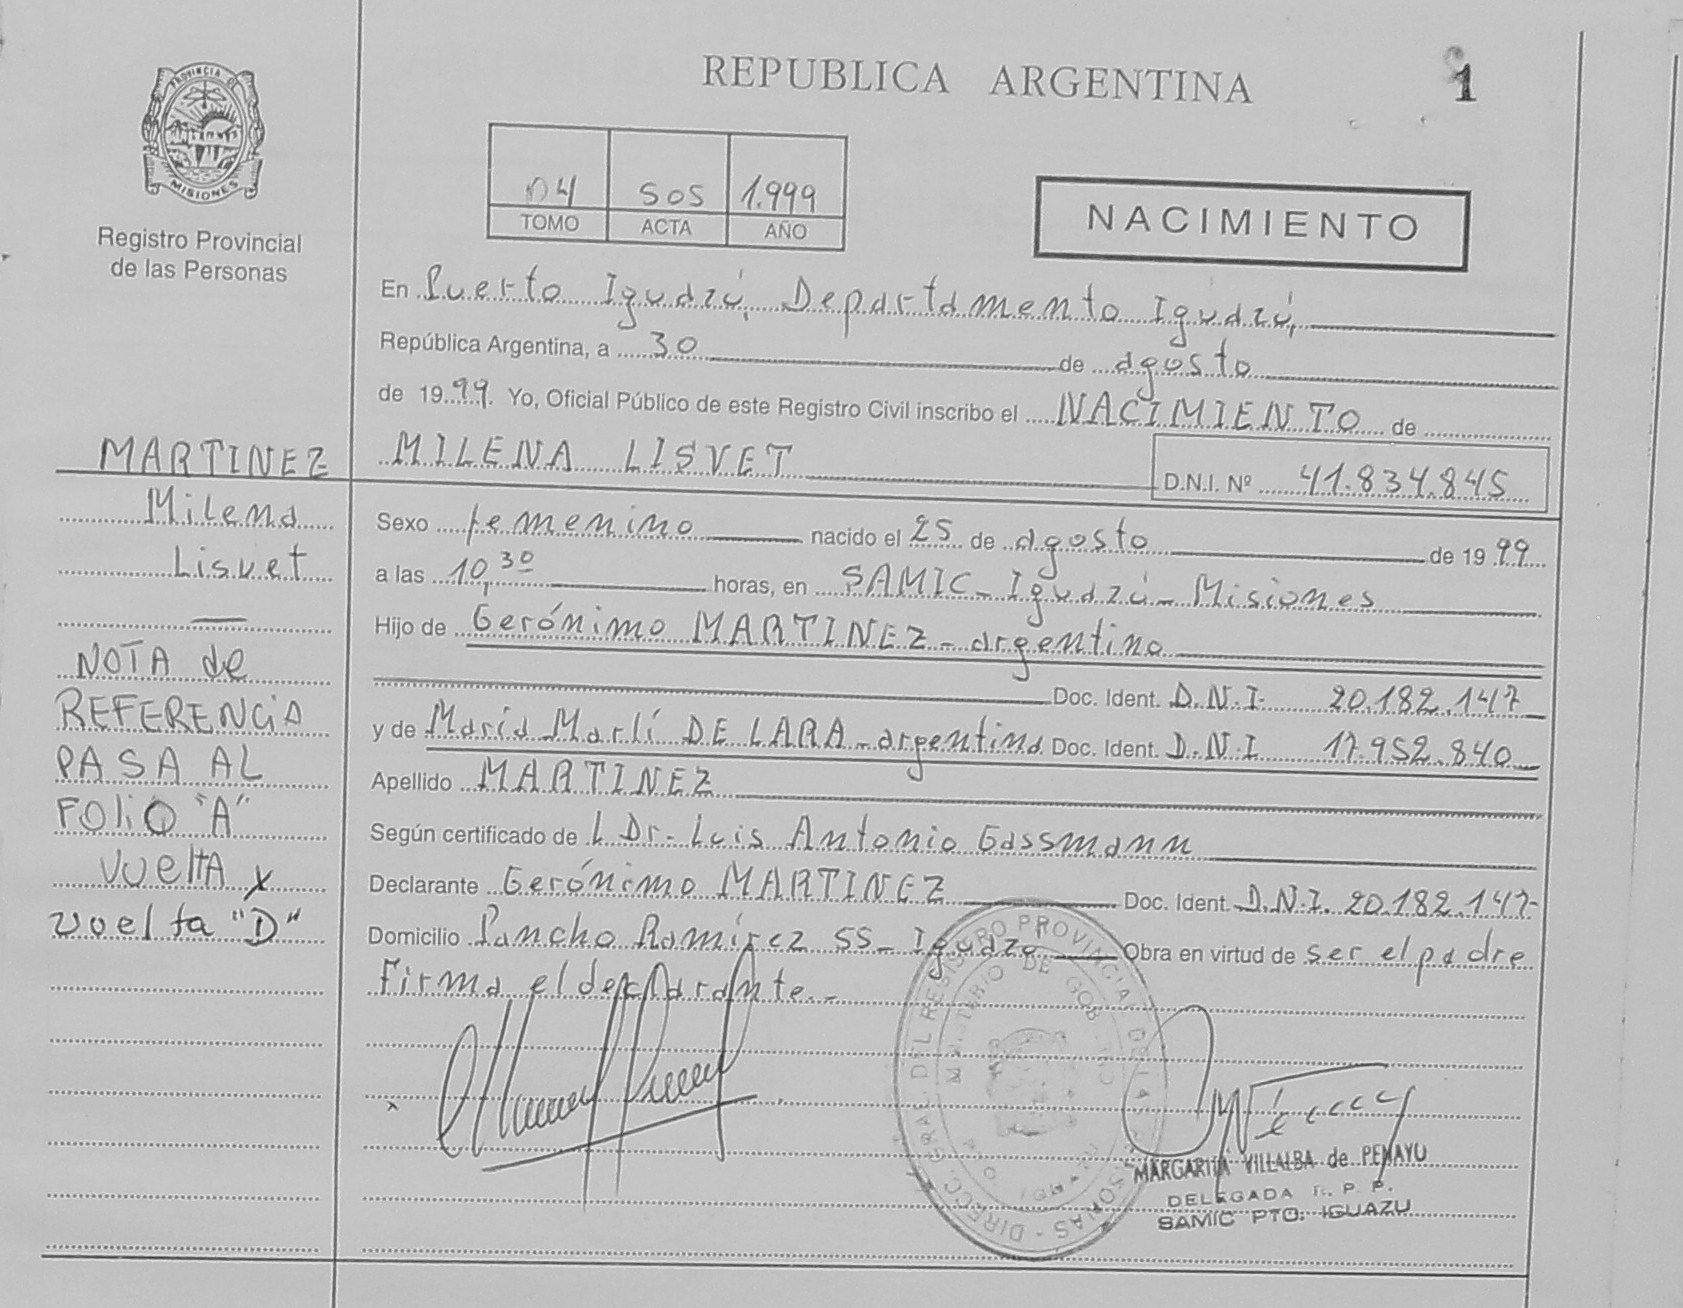 REPUBLICA ARGENTINA
1
PROVINCIA DE
MISIONES
Registro Provincial
de las Personas
04 505 1.999
TOMO ACTA AÑO
NACIMIENTO
En Puerto Iguazú, Departamento Iguazú,
República Argentina, a 30 de agosto
de 1999. Yo, Oficial Público de este Registro Civil inscribo el NACIMIENTO de
MILENA LISVET
D.N.I. Nº 41.834.845
Sexo femenino nacido el 25 de agosto de 1999
a las 10,30 horas, en SAMIC_Iguazú_Misiones
Hijo de Gerónimo MARTINEZ_argentino
Doc. Ident. D.N.I. 20.182.147
y de María Marlí DE LARA_argentina Doc. Ident. D.N.I 17.952.840
Apellido MARTINEZ
Según certificado de L Dr. Luis Antonio Gassmann
Declarante Gerónimo MARTINEZ Doc. Ident. D.N.I. 20.182.147-
Domicilio Pancho Ramírez 55_Iguazú Obra en virtud de ser el padre
Firma el declarante._
MARTINEZ
Milena
Lisvet
NOTA de
REFERENCIA
PASA AL
FOLIO "A"
VUELTA y
vuelta "D"
DIRECC. GRAL. DEL REGISTRO PROVINCIAL DE LAS PERSONAS
MINISTERIO DE GOB
MARGARITA VILLALBA de PENAYO
DELEGADA R. P. P.
SAMIC PTO. IGUAZU